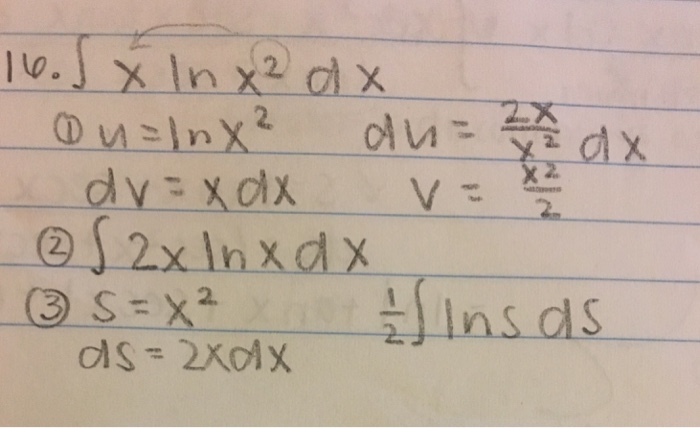 16. ∫ x ln x² dx
① u = ln x² du = 2x/x² dx
dv = x dx v = x²/2
② ∫ 2x ln x dx
③ s = x² ½ ∫ ln s ds
ds = 2x dx